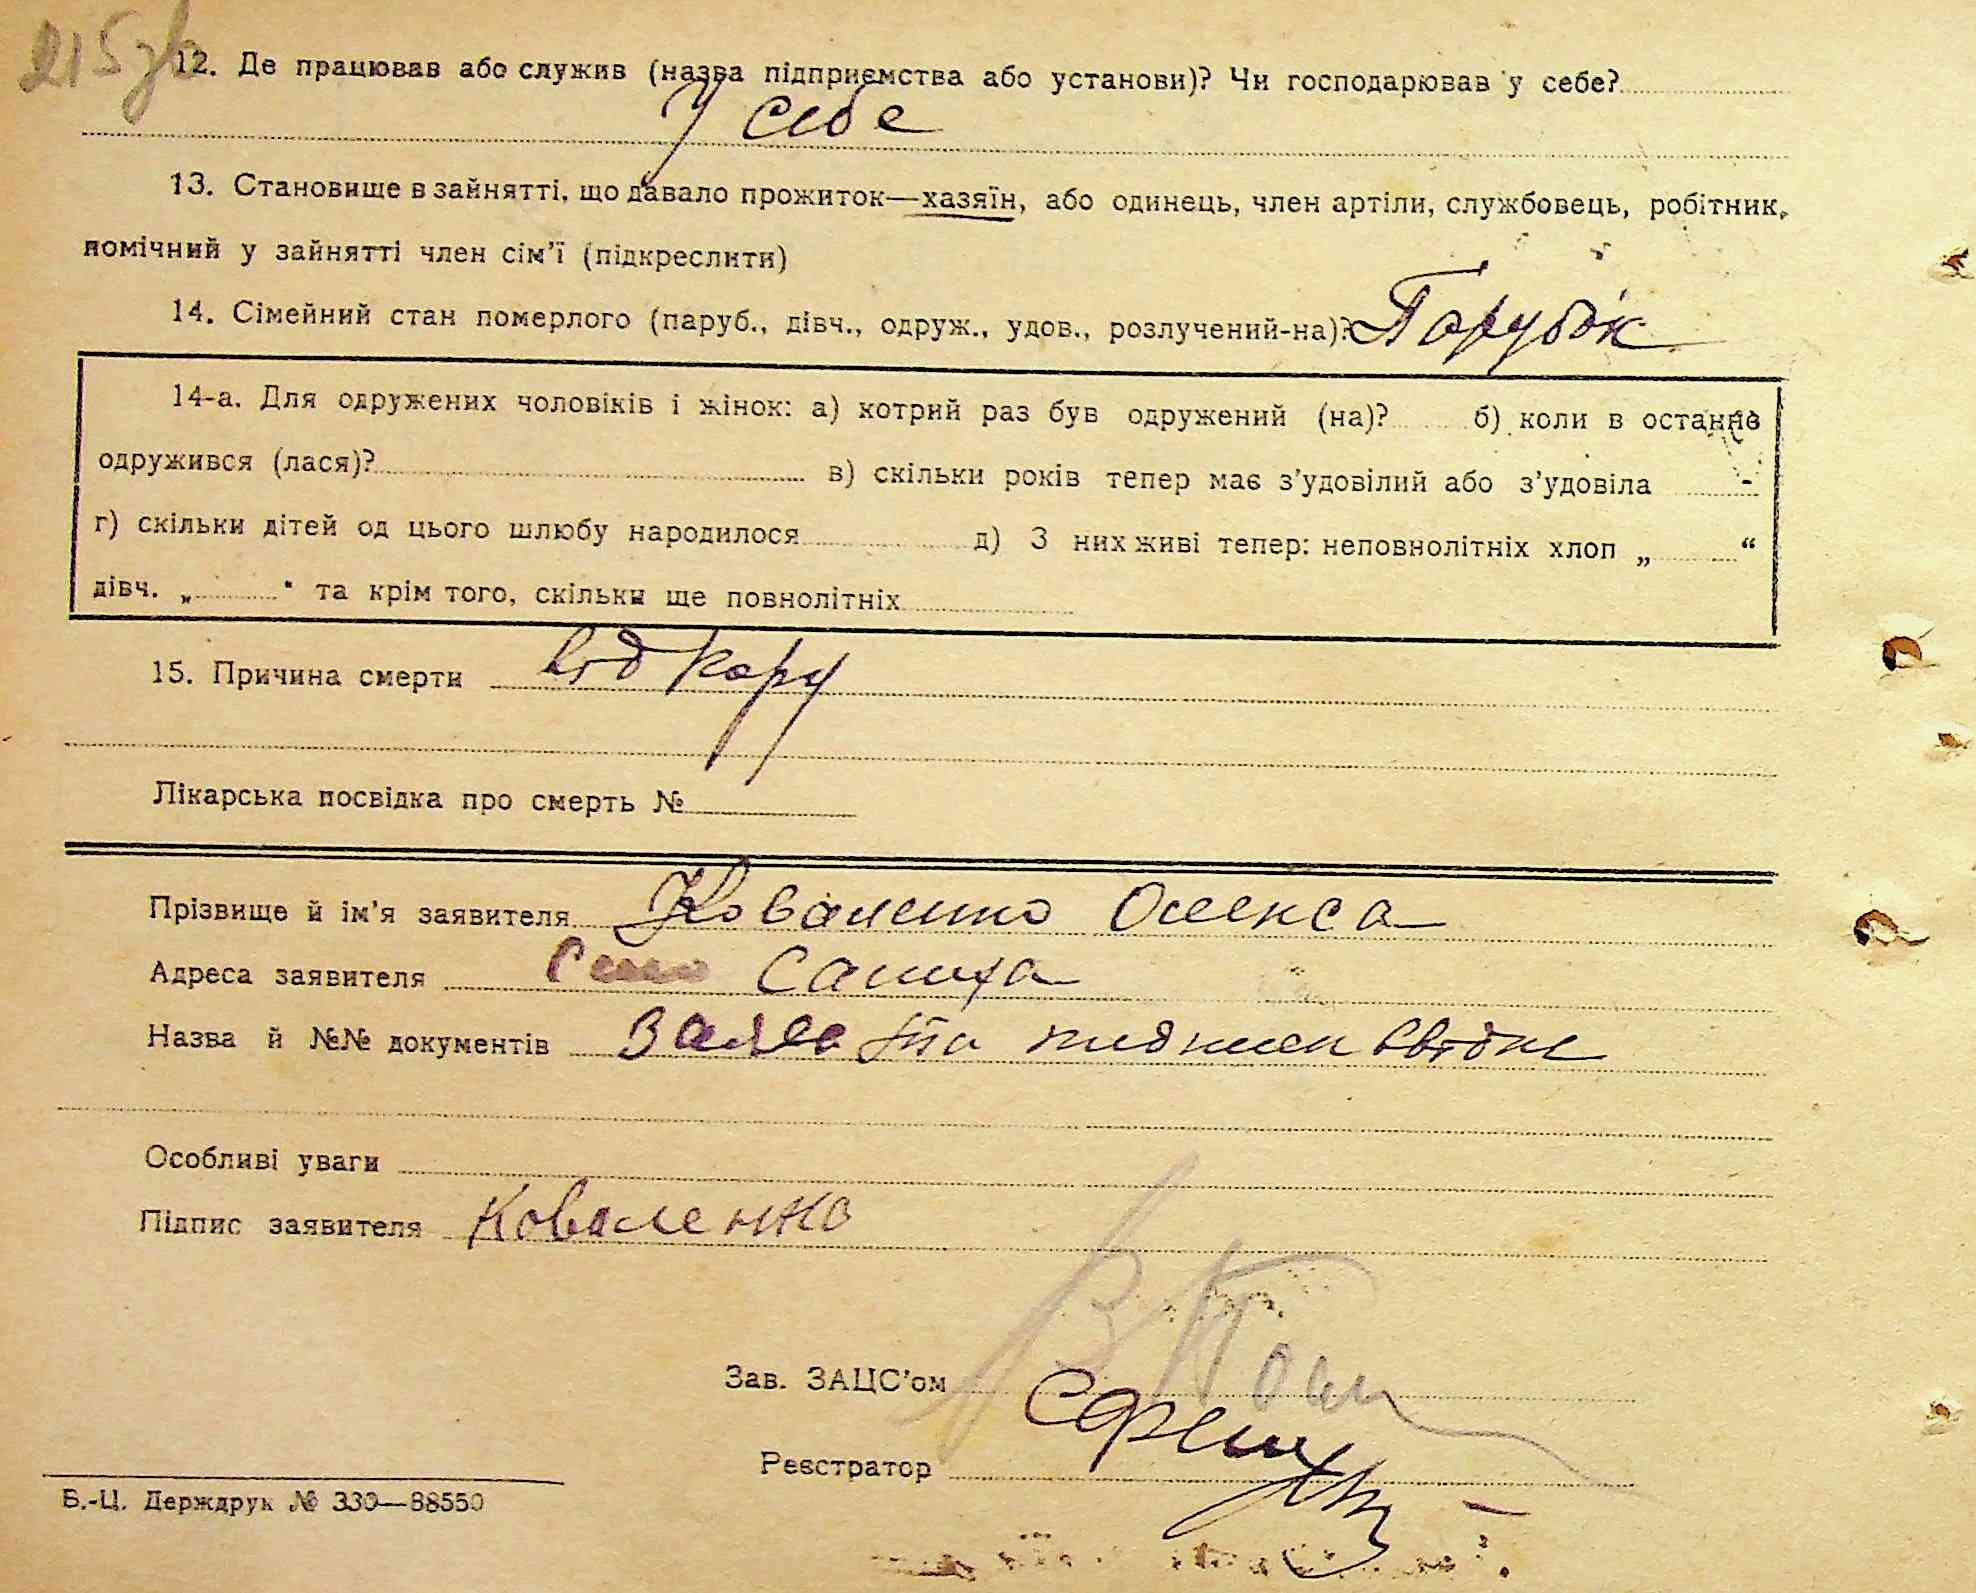 215зв
12. Де працював або служив (назва підприємства або установи)? Чи господарював у себе?
У себе
13. Становище в зайнятті, що давало прожиток—хазяїн, або одинець, член артіли, службовець, робітник,
помічний у зайнятті член сім’ї (підкреслити)
14. Сімейний стан померлого (паруб., дівч., одруж., удов., розлучений-на)? Парубок
14-а. Для одружених чоловіків і жінок: а) котрий раз був одружений (на)? б) коли в останнє
одружився (лася)? в) скільки років тепер має з’удовілий або з’удовіла
г) скільки дітей од цього шлюбу народилося д) З них живі тепер: неповнолітніх хлоп „ “
дівч. „ “ та крім того, скільки ще повнолітніх
15. Причина смерти від кору
Лікарська посвідка про смерть №
Прізвище й ім’я заявителя Коваленко Олекса
Адреса заявителя Село Саниха
Назва й №№ документів Заява та
Особливі уваги
Підпис заявителя Коваленко
Зав. ЗАЦС’ом
Реєстратор
Б.-Ц. Держдрук № 330—88550